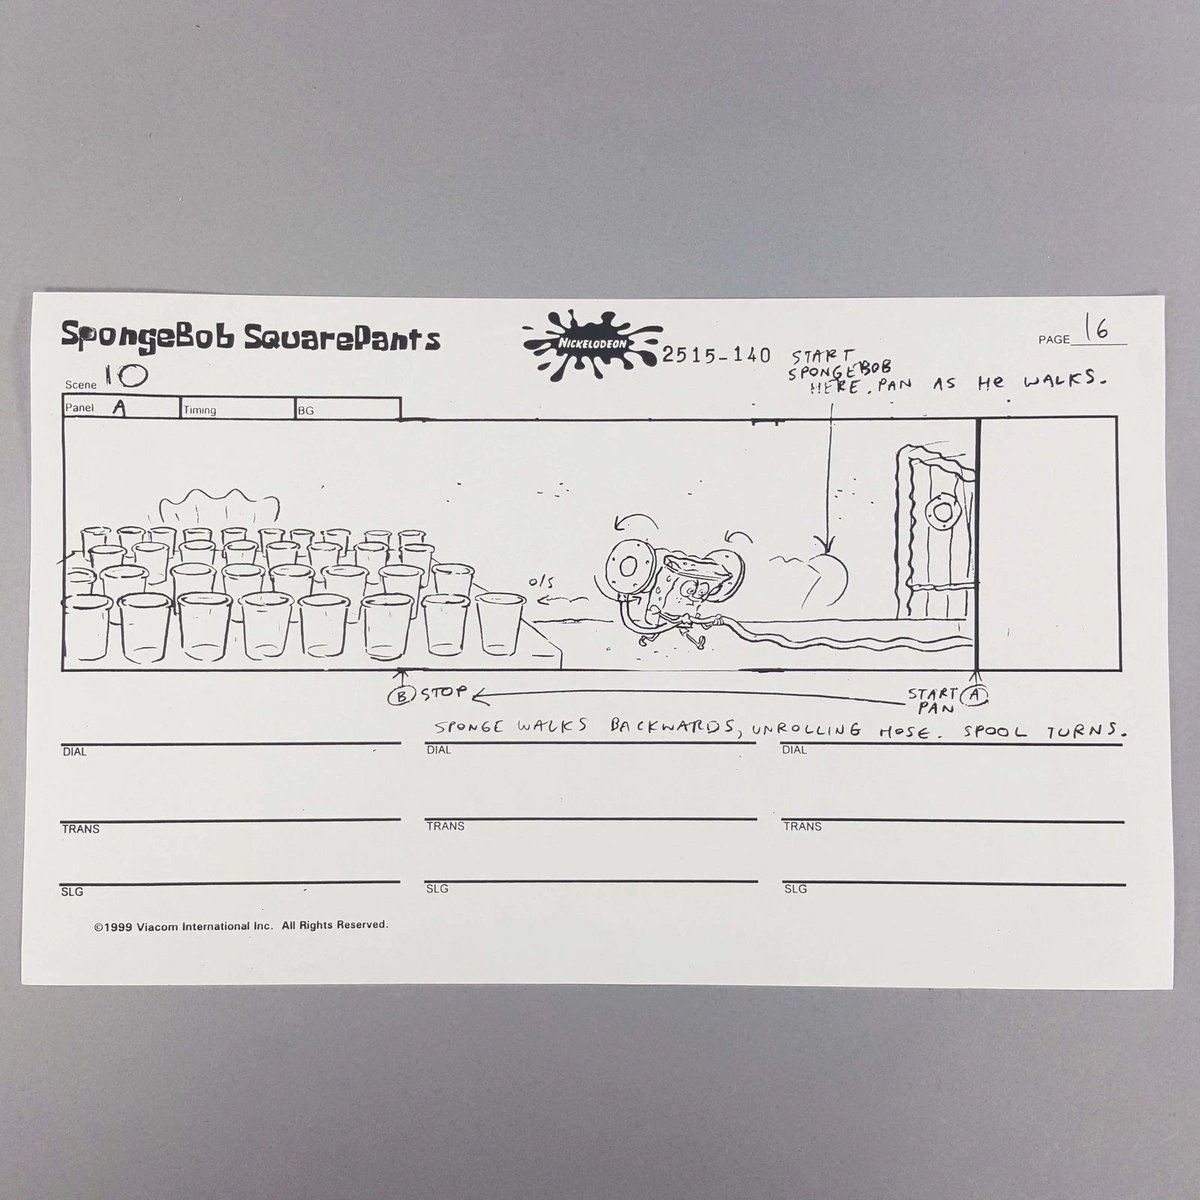 SpongeBob SquarePants
NICKELODEON
2515-140
START
SPONGEBOB
HERE. PAN AS HE WALKS.
PAGE 16
Scene 10
Panel A
Timing
BG
o/s
B STOP
START A
PAN
SPONGE WALKS BACKWARDS, UNROLLING HOSE. SPOOL TURNS.
DIAL
DIAL
DIAL
TRANS
TRANS
TRANS
SLG
SLG
SLG
©1999 Viacom International Inc. All Rights Reserved.